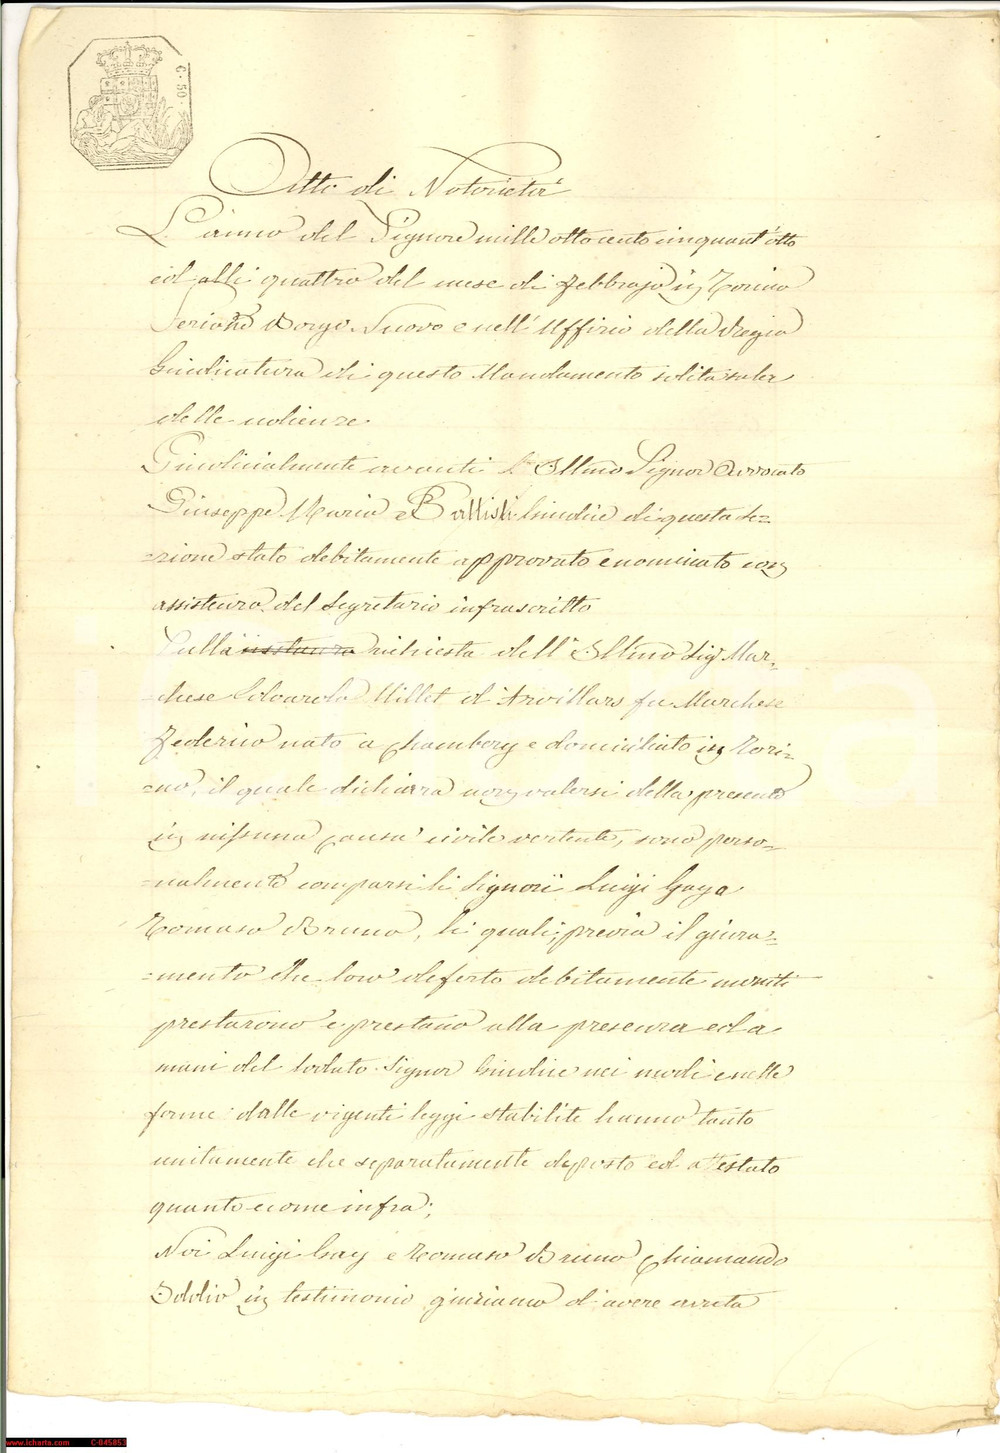 C. 50.
Atto di Notorietà
L'anno del Signore mille otto cento cinquant'otto
ed alli quattro del mese di Febbrajo in Torino
Sezione Borgo Nuovo e nell'Uffizio della Regia
Giudicatura di questo Mandamento solita sala
delle udienze
Giudicialmente avanti l'Illmo Signor Avvocato
Giuseppe Maria Battisti Giudice di questa Se=
=zione stato debitamente approvato e nominato con
assistenza del Segretario infrascritto
Sulla instanza richiesta dell'Illmo Sig Mar=
=chese Edoardo Millet d'Arvillars fu Marchese
Federico nato a Chambery e domiciliato in Tori=
=no, il quale dichiara non valersi della presente
in nissuna causa civile vertente, sono perso=
=nalmente comparsi li Signori Luigi Gaya
Tomaso Bruno, li quali, previa il giura=
=mento che loro deferto debitamente muniti
prestarono e prestano alla presenza ed a
mani del lodato Signor Giudice nei modi e nelle
forme dalle vigenti leggi stabilite hanno tanto
unitamente che separatamente deposto ed attestato
quanto e come infra;
Noi Luigi Gay e Tomaso Bruno chiamando
Iddio in testimonio giuriamo d'avere avuta
www.icharta.com C-045853